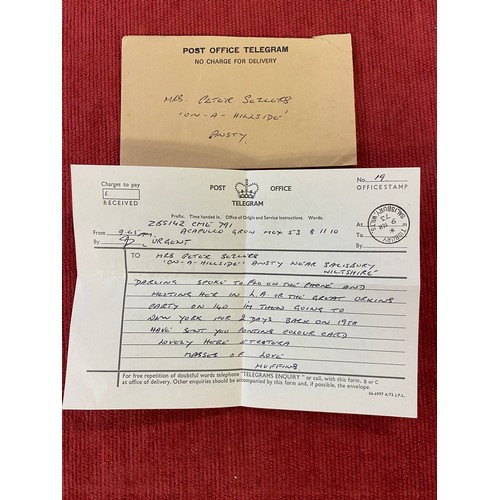 POST OFFICE TELEGRAM
NO CHARGE FOR DELIVERY
MRS PETER SELLERS
'ON-A-HILLSIDE'
ANSTY,
Charges to pay
£
RECEIVED
POST OFFICE
TELEGRAM
No. 19
OFFICE STAMP
Prefix. Time handed in. Office of Origin and Service Instructions. Words.
ZBS142 CME 791
From 9.45AM ACAPULCO GRON MEX 53 8 1110
By URGENT
At
To
By
SALISBURY, WILTS
9 73
TO MRS PETER SELLERS
'ON-A-HILLSIDE' ANSTY NEAR SALISBURY
WILTSHIRE
DARLING SPOKE TO PEO ON THE PHONE AND
MEETING HER IN L.A OR THE GREAT ORKINS
PARTY ON 14TH IM THEN GOING TO
NEW YORK FOR 2 DAYS BACK ON 19TH
HAVE SENT YOU PONTING COLOUR CARD
LOVELY HERE ETCETORA
MASSES OF LOVE
MUFFINS
For free repetition of doubtful words telephone "TELEGRAMS ENQUIRY" or call, with this form, B or C
at office of delivery. Other enquiries should be accompanied by this form and, if possible, the envelope.